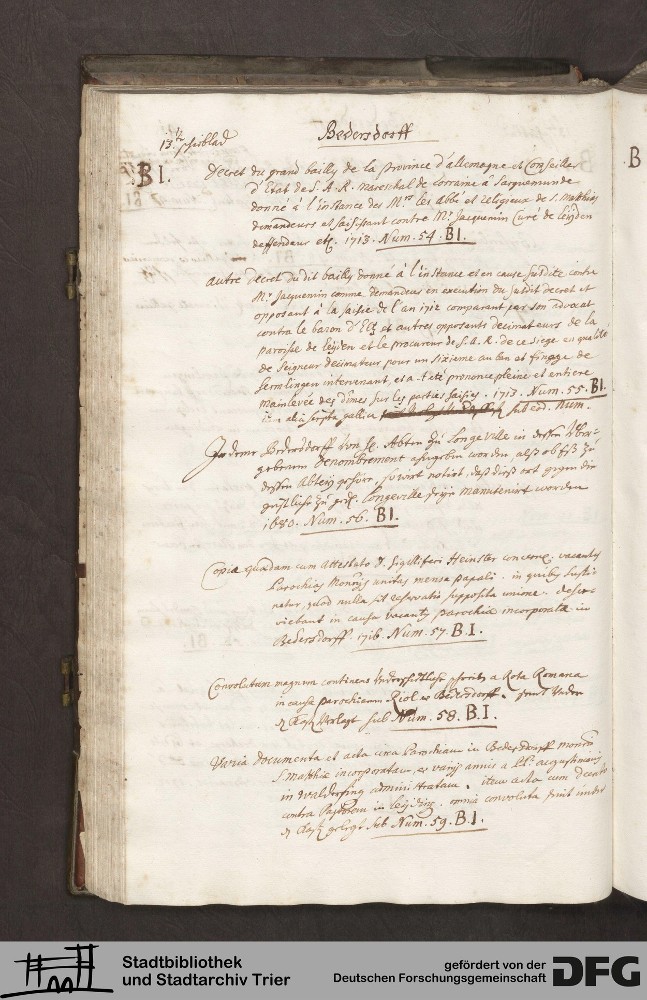 13te schublad
Bedersdorff
B I.
Decret du grand bailly de la province d'allemagne et Conseiller
d'Etat de S. A. R. mareschal de Lorraine à Sarguemunde
donné à l'instance des Mrs les abbé et religieux de S. Matthias
demandeurs et saisissant contre Mr. Jacquemin Curé de Leyden
deffendeur etc. 1713. Num. 54. B I.
autre decret du dit bailly donné à l'instance et en cause susdite contre
Mr. Jacquemin comme demandeur en execution du susdit decret et
opposant à la saisie de l'an 1712 comparant par son advocat
contre le baron d'Elz et autres opposants decimateurs de la
paroisse de Leyden et le procureur de S. A. R. de ce siege en qualité
de Seigneur decimateur pour un sixieme au ban et finage de
Kerrlingen intervenant, et a été prononcé pleine et entiere
mainlevée des dîmes sur les parties saisies. 1713. Num. 55. B I.
item alia scripta gallica sub eod. Num.
Bedersdorff von H. Abten zu Longeville in dessen
gebenem denombrement angegeben worden, alß ob eß zu
dessen Abtey gehöre, so wird notirt, daß dieß ort gegen die
geistliche zu Longeville seye manutenirt worden
1680. Num. 56. B I.
Copiæ quædam cum attestato D. Sigilliferi Heinster concern. vacantis
Parochias Monrÿ unitas mensa papali. in quibus susti-
netur, quod nulla sit reservatio supposita unione. deser-
viebant in causa vacantis parochiæ incorporatæ in
Bedersdorff. 1716. Num. 57. B I.
Convolutum magnum continens Underschidliche a Rota Romana
in causa parochiarum Riol et Bedersdorff. seind
sub Num. 58. B. I.
Varia documenta et acta circa Parochiam in Bedersdorff monrio
S. Matthiæ incorporatam, et varijs annis a PP. augustinianis
in Walderfing administratam. item acta cum
contra Pastorem in Leyding. omnia convoluta seind
gelegt sub Num. 59. B. I.
B
Stadtbibliothek
und Stadtarchiv Trier
gefördert von der
Deutschen Forschungsgemeinschaft
DFG